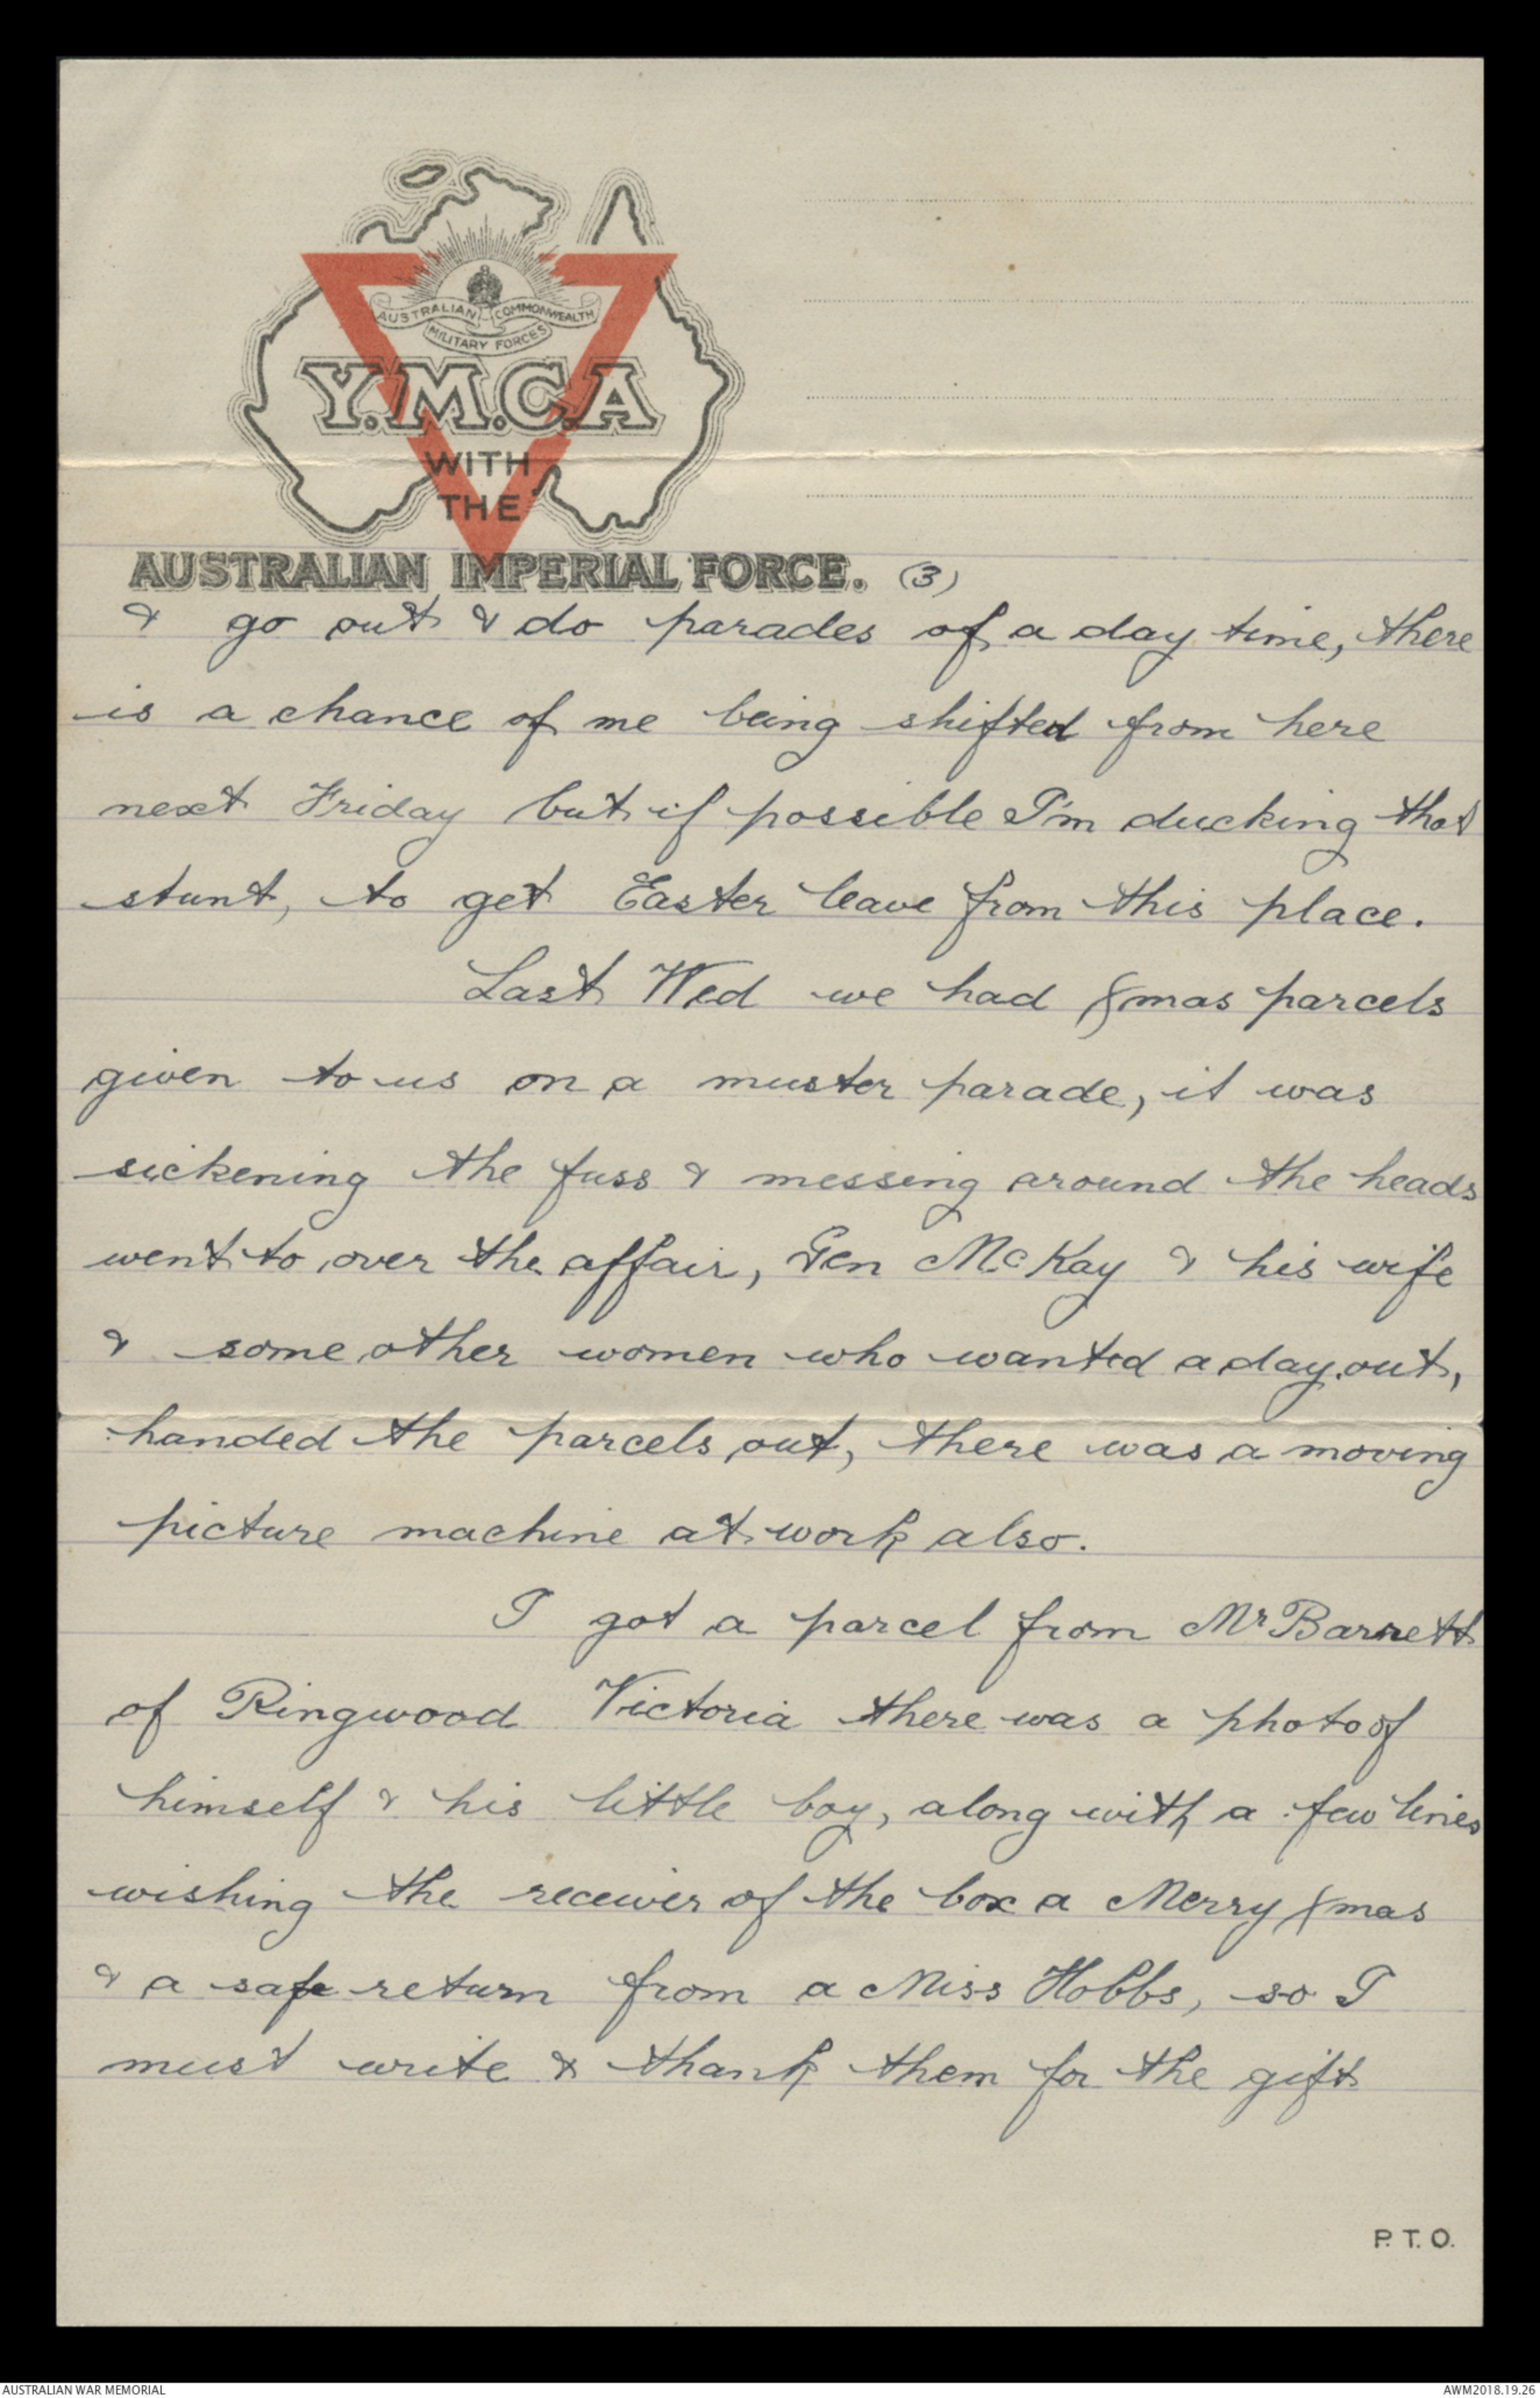 AUSTRALIAN COMMONWEALTH
MILITARY FORCES
Y.M.C.A
WITH
THE
AUSTRALIAN IMPERIAL FORCE. (3)
& go out & do parades of a day time, there
is a chance of me being shifted from here
next Friday but if possible I'm ducking that
stunt, to get Easter leave from this place.
Last Wed we had Xmas parcels
given to us on a muster parade, it was
sickening the fuss & messing around the heads
went to over the affair, Gen McKay & his wife
& some other women who wanted a day out,
handed the parcels out, there was a moving
picture machine at work also.
I got a parcel from Mr Barnett
of Ringwood Victoria there was a photo of
himself & his little boy, along with a few lines
wishing the receiver of the box a Merry Xmas
& a safe return from a Miss Hobbs, so I
must write & thank them for the gift
P.T.O.
AUSTRALIAN WAR MEMORIAL
AWM2018.19.26